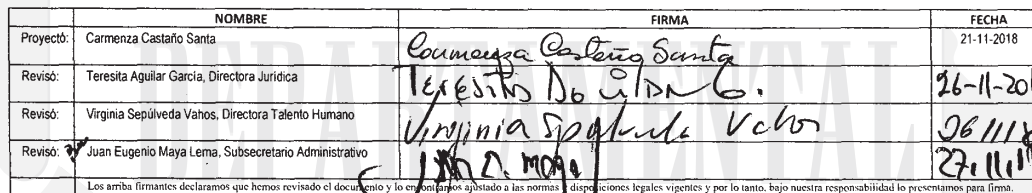 NOMBRE FIRMA FECHA
Proyectó: Carmenza Castaño Santa Carmenza Castaño Santa 21-11-2018
Revisó: Teresita Aguilar García, Directora Jurídica Teresita Aguilar G. 26-11-20
Revisó: Virginia Sepúlveda Vahos, Directora Talento Humano Virginia Sepulveda Vahos 26/11/1
Revisó: Juan Eugenio Maya Lema, Subsecretario Administrativo Juan E. Maya 27.11.1
Los arriba firmantes declaramos que hemos revisado el documento y lo encontramos ajustado a las normas y disposiciones legales vigentes y por lo tanto, bajo nuestra responsabilidad lo presentamos para firma.